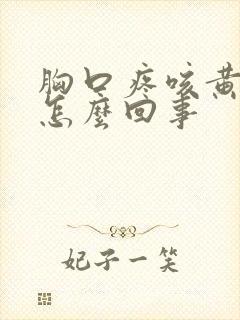 胸口疼咳黄
怎麼回事
妃子一笑